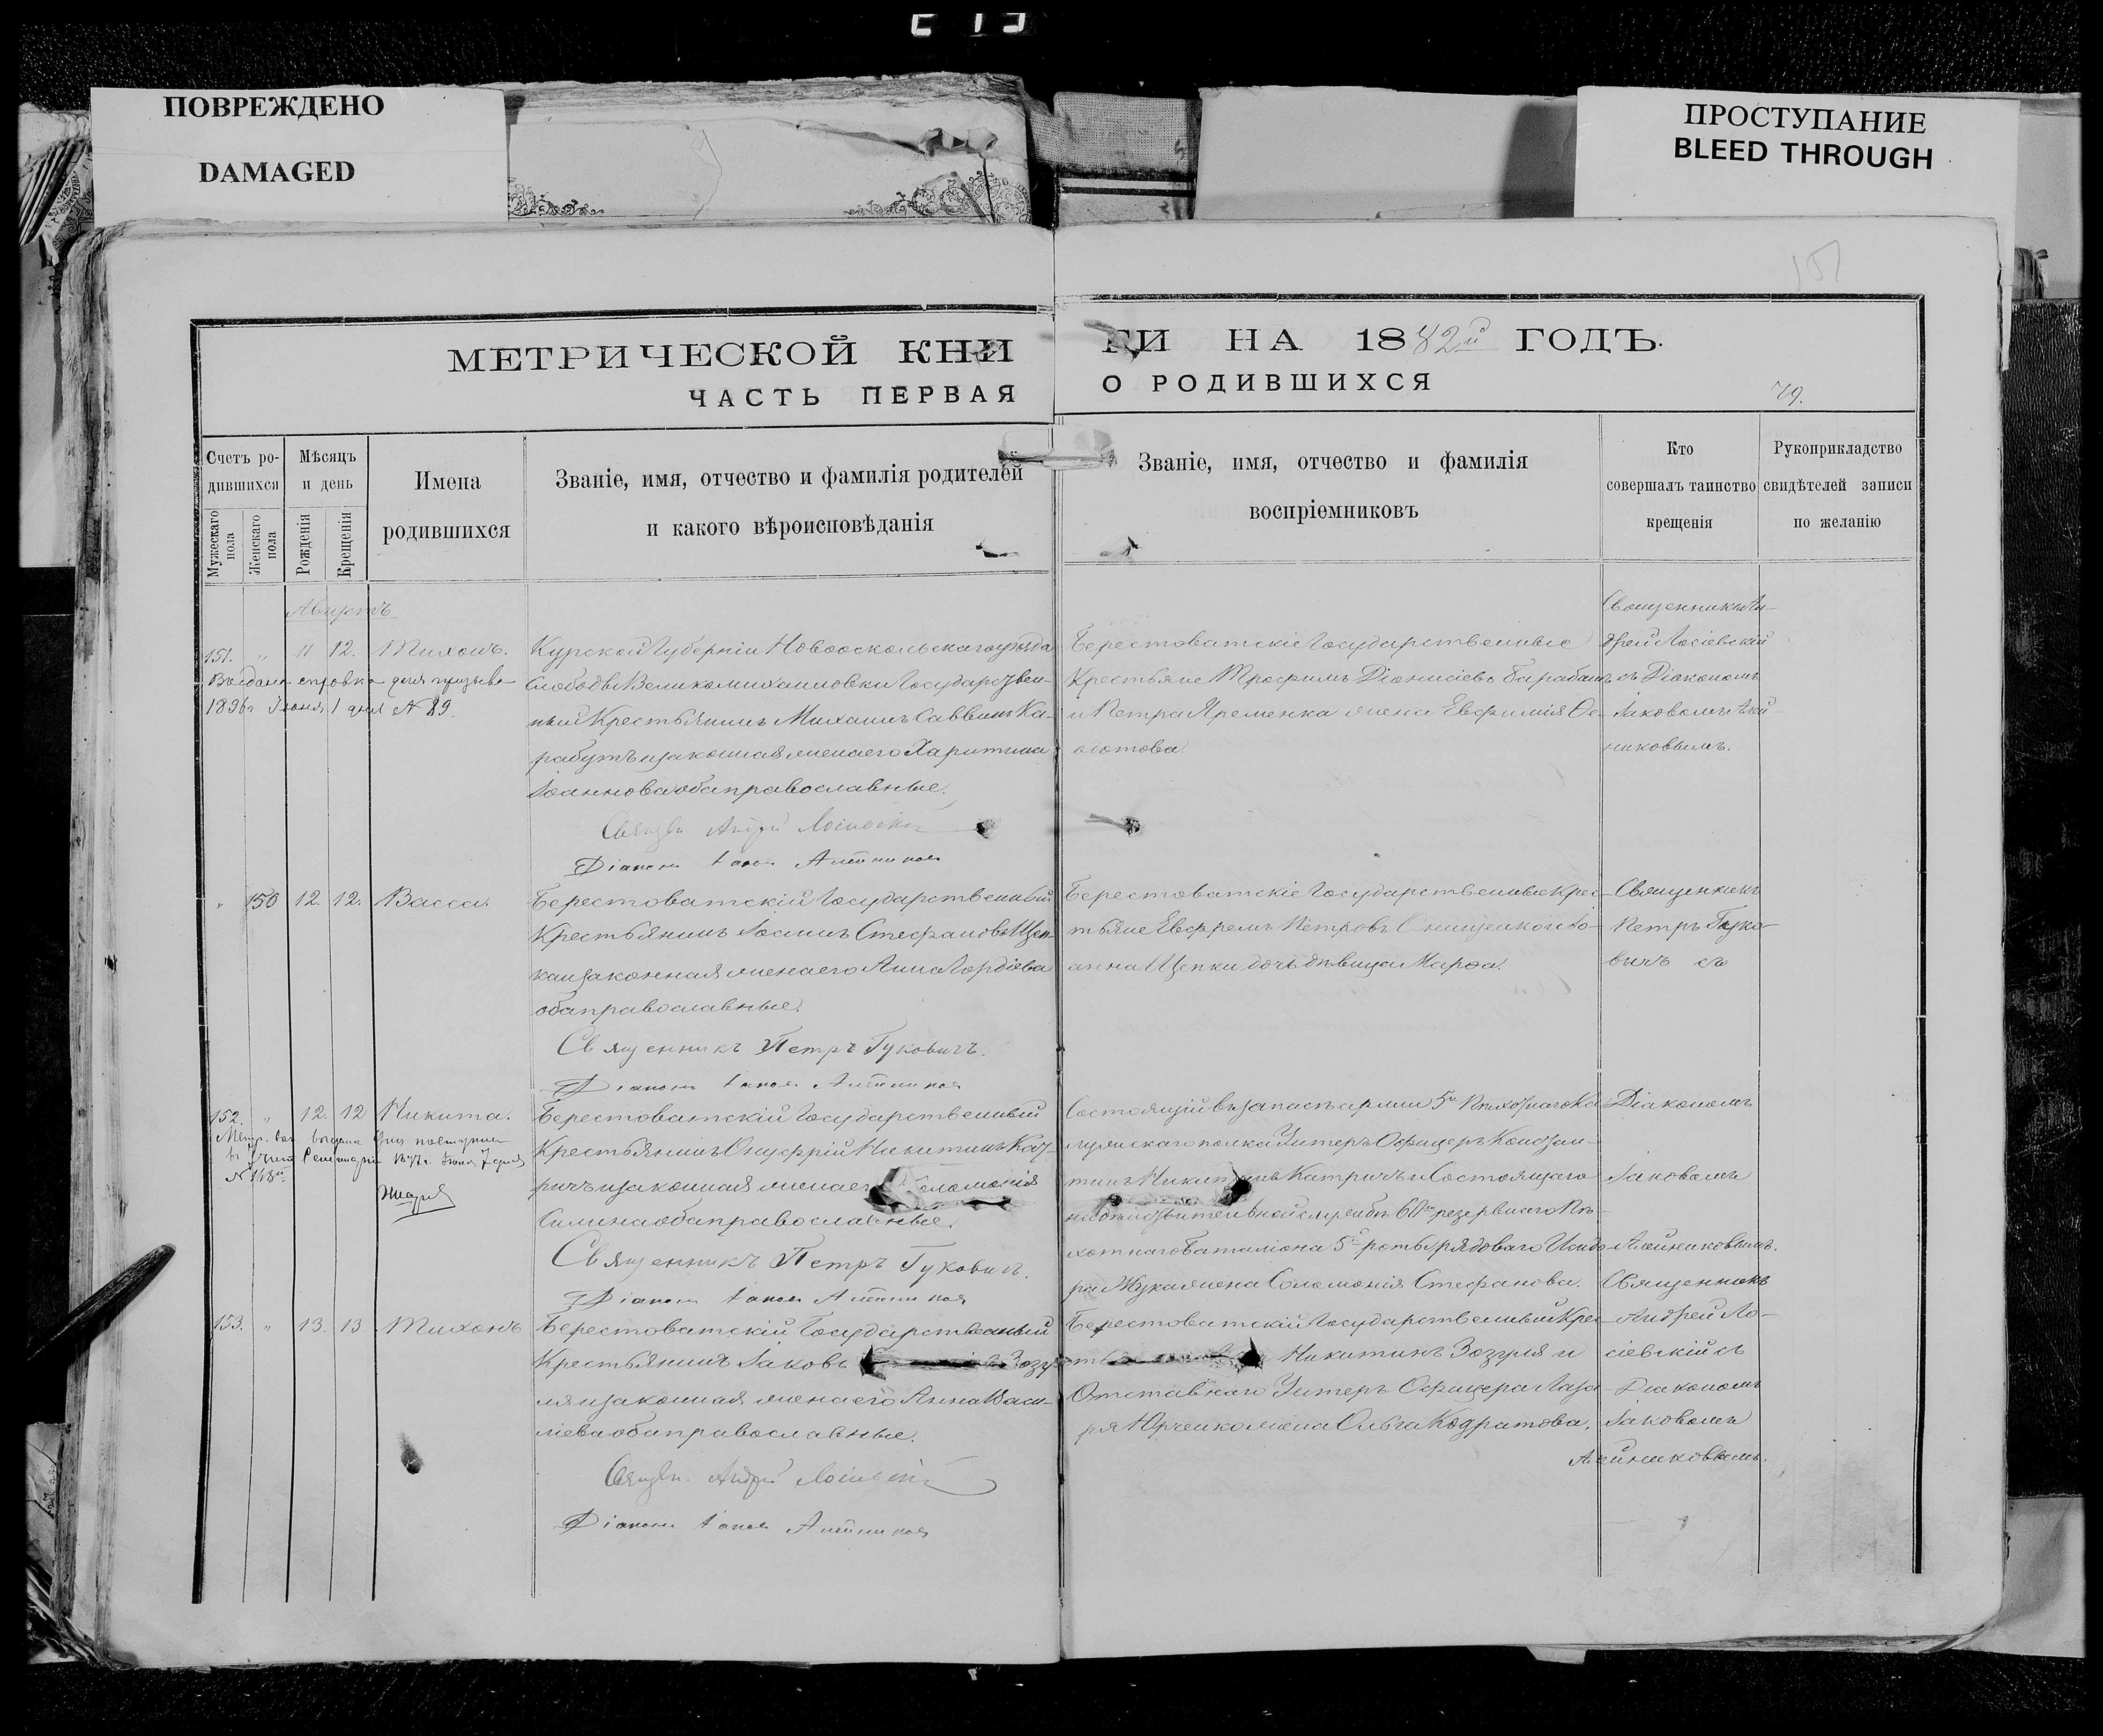 ПОВРЕЖДЕНО
DAMAGED
ПРОСТУПАНИЕ
BLEED THROUGH
МЕТРИЧЕСКОЙ КНИГИ НА 1882й ГОДЪ.
ЧАСТЬ ПЕРВАЯ О РОДИВШИХСЯ
79.
Счетъ ро-
дившихся
Мужескаго пола
Женскаго пола
Мѣсяцъ
и день
Рожденія
Крещенія
Имена
родившихся
Званіе, имя, отчество и фамилія родителей
и какого вѣроисповѣданія
Званіе, имя, отчество и фамилія
воспріемниковъ
Кто
совершалъ таинство
крещенія
Рукоприкладство
свидѣтелей записи
по желанію
Августъ
151. " 11 12. Тихонъ.
Выдана справка для призыва
1896г. Іюня 1 дня № 89.
Курской Губерніи Новооскольскаго уѣзда
слободы Великомихаиловки Государствен-
ный Крестьянинъ Михаилъ Саввинъ Ка-
рабутъ и законная жена его Харитина
Іоаннова оба православные.
Діаконъ Іаковъ Алейниковъ
Берестоватскіе Государственные
Крестьяне Трофимъ Діонисіевъ Барабашъ
и Петра Яременка жена Евфимія Ѳе-
дотова
Священникъ Ан-
дрей Лосіевскій
съ Діакономъ
Іаковомъ Алей-
никовымъ.
" 150 12. 12. Васса.
Берестоватскій Государственный
Крестьянинъ Іоаннъ Стефановъ Цеп-
ка и законная жена его Анна Гордіева
оба православные.
Священникъ Петръ Гуковичъ.
Діаконъ Іаковъ Алейниковъ
Берестоватскіе Государственные Крес-
тьяне Евфремъ Петровъ Онищенко и Іо-
анна Цепки дочь дѣвица Марѳа.
Священникъ
Петръ Гуко-
вичъ съ
152. " 12. 12 Никита.
Берестоватскій Государственный
Крестьянинъ Онуфрій Никитинъ Кат-
ричъ и законная жена его Соломонія
Силина оба православные.
Священникъ Петръ Гуковичъ.
Діаконъ Іаковъ Алейниковъ
Состоящій въ запасѣ арміи 5го Пѣхотнаго Ка-
лужскаго полка Унтеръ Офицеръ Констан-
тинъ Никитинъ Катричъ и Состоящаго
на дѣйствительной службѣ 60го резервнаго Пѣ-
хотнаго баталіона 5й роты рядоваго Исидо-
ра Жука жена Соломонія Стефанова.
Діакономъ
Іаковомъ
Алейниковымъ.
153. " 13. 13 Тихонъ
Берестоватскій Государственный
Крестьянинъ Іаковъ Зозу-
ля и законная жена его Анна Васи-
ліева оба православные.
Діаконъ Іаковъ Алейниковъ
Берестоватскій Государственный Крес-
Никитинъ Зозуля и
Отставнаго Унтеръ Офицера Лаза-
ря Юрченко жена Ольга Кодратова.
Священникъ
Андрей Ло-
сіевскій съ
Діакономъ
Іаковомъ
Алейниковымъ.